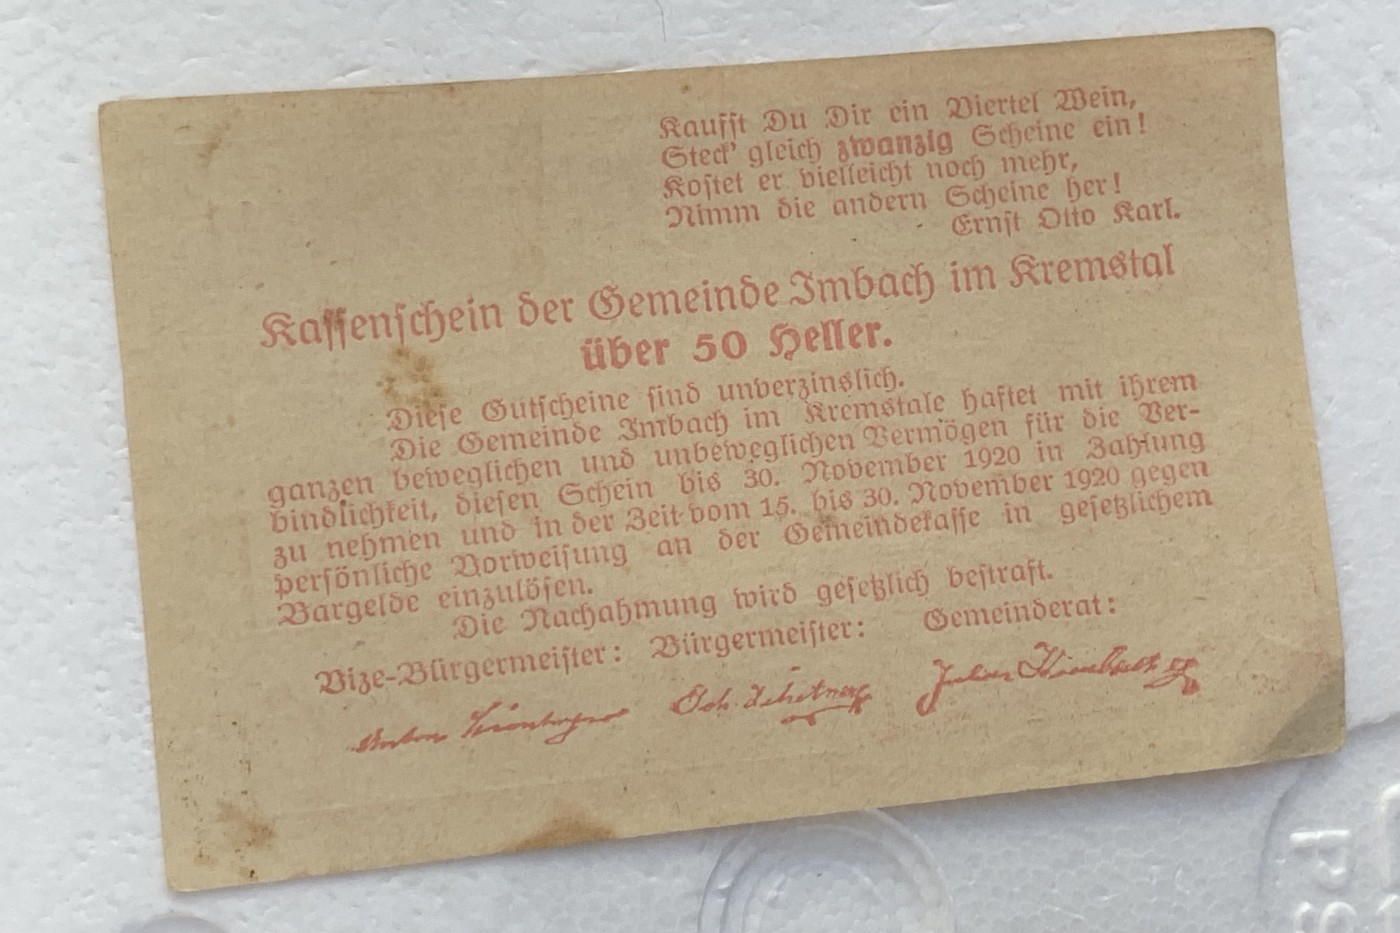 Kaufst Du Dir ein Viertel Wein,
Steck' gleich zwanzig Scheine ein!
Kostet er vielleicht noch mehr,
Nimm die andern Scheine her!
Ernst Otto Karl.
Kassenschein der Gemeinde Imbach im Kremstal
über 50 Heller.
Diese Gutscheine sind unverzinslich.
Die Gemeinde Imbach im Kremstale haftet mit ihrem
ganzen beweglichen und unbeweglichen Vermögen für die Ver-
bindlichkeit, diesen Schein bis 30. November 1920 in Zahlung
zu nehmen und in der Zeit vom 15. bis 30. November 1920 gegen
persönliche Vorweisung an der Gemeindekasse in gesetzlichem
Bargelde einzulösen.
Die Nachahmung wird gesetzlich bestraft.
Vize-Bürgermeister: Bürgermeister: Gemeinderat: